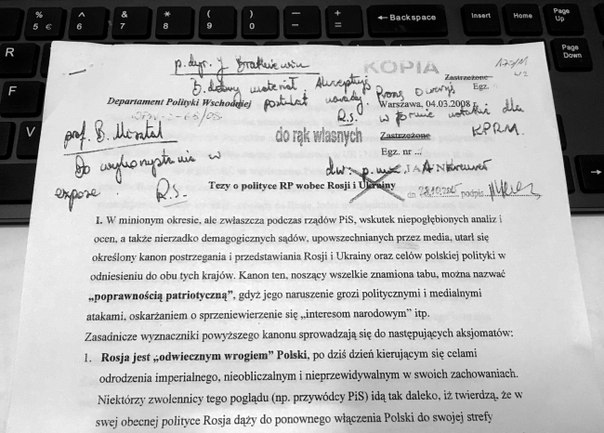 p. dyr. J. Bratkiewicz
KOPIA
B. dobry materiał. Akceptuję
Zastrzeżone
Egz.
Departament Polityki Wschodniej
postulat
Proszę
Warszawa, 04.03.2008 r.
R.S.
w formie notatki dla
KPRM.
do rąk własnych
Zastrzeżone
Egz. nr
prof. B. Misztal
Do wykorzystania w
expose
R.S.
Tezy o polityce RP wobec Rosji i Ukrainy
dn. podpis
I. W minionym okresie, ale zwłaszcza podczas rządów PiS, wskutek niepogłębionych analiz i
ocen, a także nierzadko demagogicznych sądów, upowszechnianych przez media, utarł się
określony kanon postrzegania i przedstawiania Rosji i Ukrainy oraz celów polskiej polityki w
odniesieniu do obu tych krajów. Kanon ten, noszący wszelkie znamiona tabu, można nazwać
„poprawnością patriotyczną”, gdyż jego naruszenie grozi politycznymi i medialnymi
atakami, oskarżaniem o sprzeniewierzenie się „interesom narodowym” itp.
Zasadnicze wyznaczniki powyższego kanonu sprowadzają się do następujących aksjomatów:
1. Rosja jest „odwiecznym wrogiem” Polski, po dziś dzień kierującym się celami
odrodzenia imperialnego, nieobliczalnym i nieprzewidywalnym w swoich zachowaniach.
Niektórzy zwolennicy tego poglądu (np. przywódcy PiS) idą tak daleko, iż twierdzą, że w
swej obecnej polityce Rosja dąży do ponownego włączenia Polski do swojej strefy
% 5 €
6
7
8
9
0
Backspace
Insert
Home
Page Up
Page Down
R
F
V